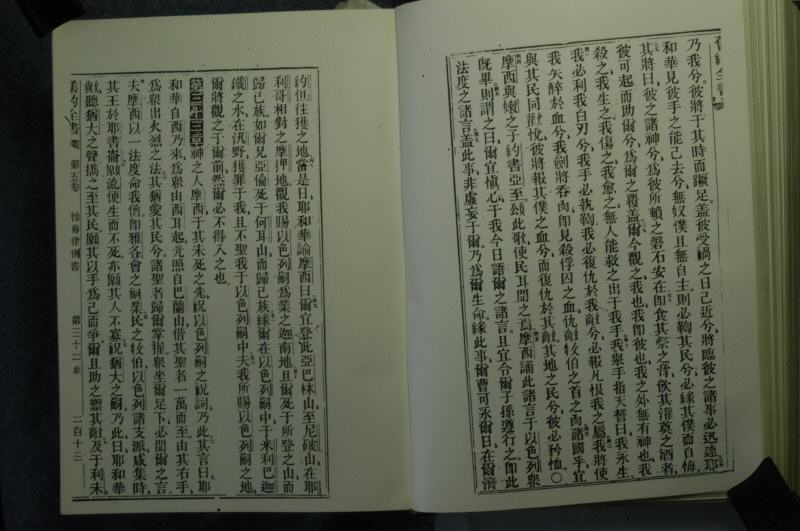 乃我兮。彼將于其時而蹶足。盖彼受禍之日已近兮。將臨彼之諸事必迅速。耶
和華見彼手之能已去兮。無奴僕且無自主。則必鞫其民兮。必緣其僕而自悔。
其將曰。彼之諸神兮。爲彼所頼之磐石安在。卽食其祭之膏。飲其灌奠之酒者。
彼可起而助爾兮。爲爾之覆盖。爾今觀之。我也我卽彼也。我之外無有神也。我
殺之。我生之。我傷之。我愈之。無人能救之出于我手。我舉手指天誓曰。我永生
我必利我白刃兮。我手必執鞫。我必復仇於我敵兮。必報凡恨我之屬。我將使
我矢醉於血兮。我劍將吞肉。卽見殺俘囚之血。仇敵牧伯之首之肉。諸國乎。宜
與其民同懽悅。彼將報其僕之血兮。而復仇於其敵。其地之民兮。彼必矜恤。〇
摩西與嫩之子約書亞至。頌此歌。使民耳聞之。摩西誦此諸言于以色列衆
旣畢。則謂之曰。爾宜愼心于我今日語爾之諸言。且宜令爾子孫遵行之。卽此
法度之諸言。盖此事非虛妄于爾。乃爲爾生命。緣此事爾曹可永爾日在爾濟
約但往獲之地。當是日。耶和華諭摩西曰。爾宜登此亞巴林山。至尼破山。在耶
利哥相對之摩押地。觀我賜以色列嗣爲業之迦南地。且爾死于所登之山。而
歸已族。如爾兄亞倫死于何耳山。而歸已族。緣爾在以色列嗣中。于米利巴迦
鐵之水。在汎野獲罪于我。且不聖我于以色列嗣中。夫我所賜以色列嗣之地
爾將觀之于爾前。然爾必不得入之也。
第三十三章 神之人摩西。于其未死之先。祝以色列嗣之祝詞乃此。其言曰。耶
和華自西乃來。爲衆由西耳起。光照自巴蘭山。偕其聖者一萬而至。由其右手
爲衆出火烈之法。其猶愛其民兮。諸聖者歸爾掌握。衆坐爾足下。必聞爾之言
夫摩西以一法度命我儕。卽雅各會之嗣業。民之牧伯。以色列諸支派咸集時
其王於耶書崙。願流便生而不死。亦願其人不寡。祝猶大之嗣乃此曰。耶和華
歟。聽猶大之聲。攜之至其民。願其以手爲己而爭。爾且助之禦其敵。及于利未
舊約全書 第五卷 復傳律例書 第三十二章 二百十三